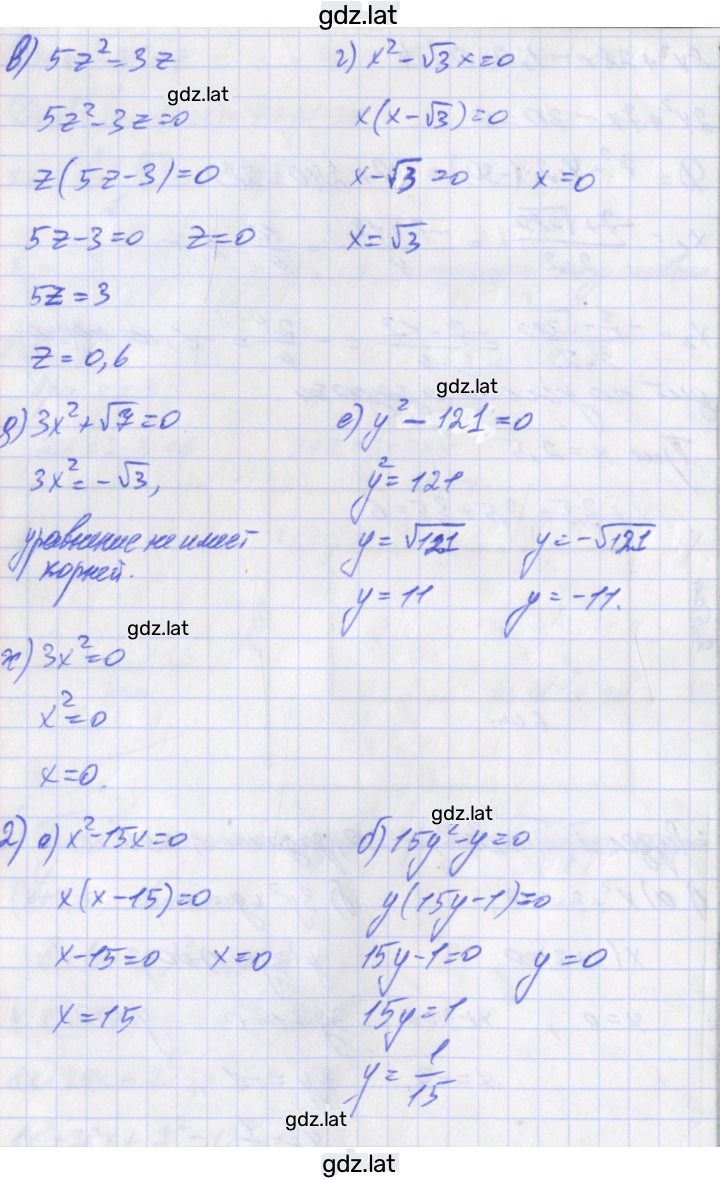 gdz.lat
в) 5z² = 3z
gdz.lat
5z² - 3z = 0
z(5z - 3) = 0
5z - 3 = 0 z = 0
5z = 3
z = 0,6
г) x² - √3 x = 0
x(x - √3) = 0
x - √3 = 0 x = 0
x = √3
gdz.lat
д) 3x² + √7 = 0
3x² = -√3,
уравнение не имеет
корней.
е) y² - 121 = 0
y² = 121
y = √121 y = -√121
y = 11 y = -11.
gdz.lat
ж) 3x² = 0
x² = 0
x = 0.
gdz.lat
2) а) x² - 15x = 0
x(x - 15) = 0
x - 15 = 0 x = 0
x = 15
б) 15y² - y = 0
y(15y - 1) = 0
15y - 1 = 0 y = 0
15y = 1
y = 1/15
gdz.lat
gdz.lat